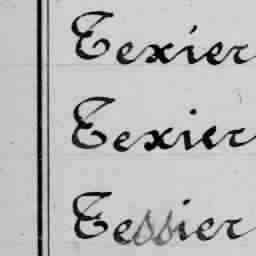 Texier
Texier
Tessier